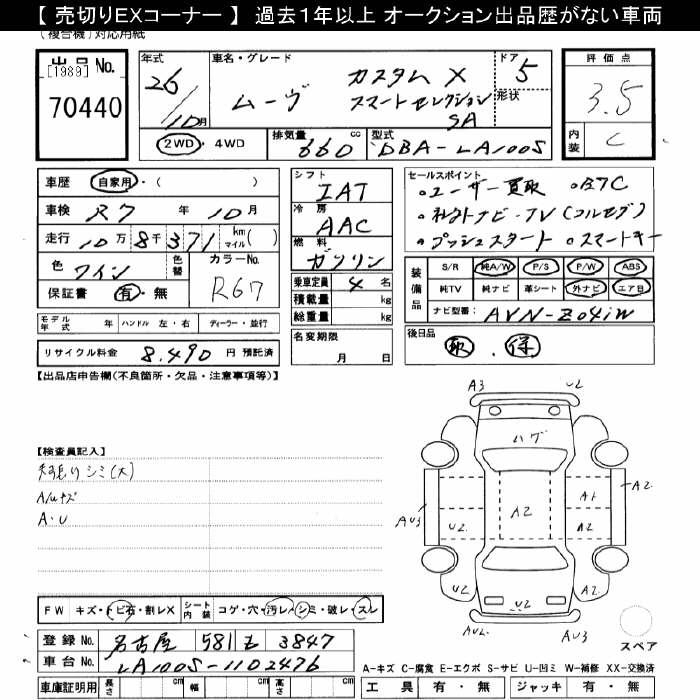 【 売切りEXコーナー 】 過去1年以上 オークション出品歴がない車両
(複合機)対応用紙
出品 No.
[1989]
70440
年式
26/10月
車名・グレード
ムーヴ
カスタム X
スマートセレクション
SA
ドア
5
形状
2WD・4WD
排気量
660 cc
型式
DBA-LA100S
評価点
3.5
内装
C
車歴
自家用・( )
車検 R7 年 10月
走行 10万 8千 371 km マイル( )
色 ワイン
色替
カラーNo.
R67
保証書 有・無
シフト
IAT
冷房
AAC
燃料
ガソリン
乗車定員 4 名
積載量 kg
総重量 kg
セールスポイント
・ユーザー買取 ○B7C
・社外ナビ・TV(フルセグ)
・プッシュスタート ○スマートキー
装備品
S/R 純A/W P/S P/W ABS
純TV 純ナビ 革シート 外ナビ エア日
ナビ型番: AVN-Z04iW
モデル年式 年 ハンドル 左・右 ディーラー・並行
リサイクル料金 8,490 円 預託済
名変期限
月 日
後日品
取・保
【出品店申告欄(不良箇所・欠品・注意事項等)】
【検査員記入】
シミ(大)
A/Wキズ
A・U
A3
U2
ハゲ
A2
A1
A2
A2
A2
U2
AU3
U2
U2
U2
AU2
AU3
スペア
FW キズ・トビ石・割レX
シート内装 コゲ・穴・汚レ・シミ・破レ・スレ
登録 No. 名古屋 581 む 3847
車台 No. LA100S-1102476
A-キズ C-腐食 E-エクボ S-サビ U-凹ミ W-補修 XX-交換済
車庫証明用 長さ cm 幅 cm 高さ cm
工具 有・無 ジャッキ 有・無